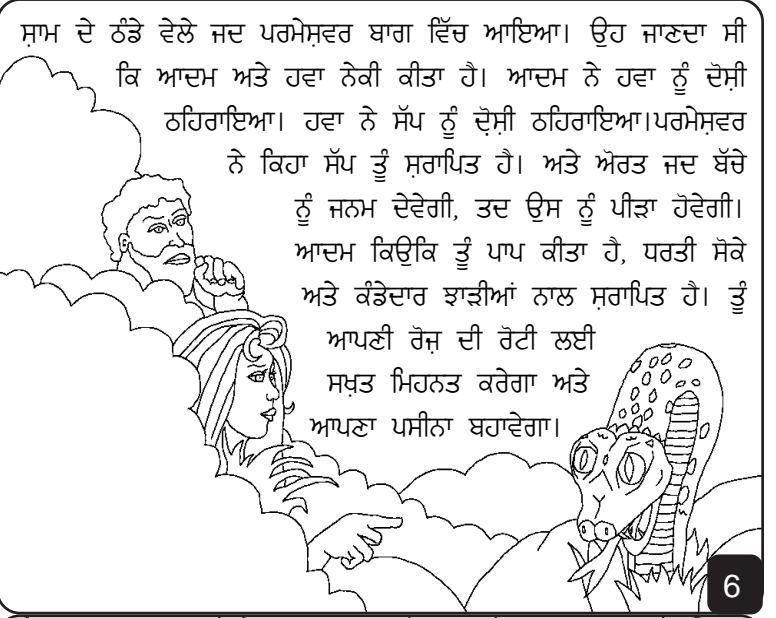 ਸ਼ਾਮ ਦੇ ਠੰਡੇ ਵੇਲੇ ਜਦ ਪਰਮੇਸ਼ਵਰ ਬਾਗ ਵਿੱਚ ਆਇਆ। ਉਹ ਜਾਣਦਾ ਸੀ
ਕਿ ਆਦਮ ਅਤੇ ਹਵਾ ਨੇਕੀ ਕੀਤਾ ਹੈ। ਆਦਮ ਨੇ ਹਵਾ ਨੂੰ ਦੋਸ਼ੀ
ਠਹਿਰਾਇਆ। ਹਵਾ ਨੇ ਸੱਪ ਨੂੰ ਦੋਸ਼ੀ ਠਹਿਰਾਇਆ।ਪਰਮੇਸ਼ਵਰ
ਨੇ ਕਿਹਾ ਸੱਪ ਤੂੰ ਸ਼ਰਾਪਿਤ ਹੈ। ਅਤੇ ਔਰਤ ਜਦ ਬੱਚੇ
ਨੂੰ ਜਨਮ ਦੇਵੇਗੀ, ਤਦ ਉਸ ਨੂੰ ਪੀੜਾ ਹੋਵੇਗੀ।
ਆਦਮ ਕਿਉਕਿ ਤੂੰ ਪਾਪ ਕੀਤਾ ਹੈ, ਧਰਤੀ ਸੋਕੇ
ਅਤੇ ਕੰਡੇਦਾਰ ਝਾੜੀਆਂ ਨਾਲ ਸ਼ਰਾਪਿਤ ਹੈ। ਤੂੰ
ਆਪਣੀ ਰੋਜ਼ ਦੀ ਰੋਟੀ ਲਈ
ਸਖ਼ਤ ਮਿਹਨਤ ਕਰੇਗਾ ਅਤੇ
ਆਪਣਾ ਪਸੀਨਾ ਬਹਾਵੇਗਾ।
6